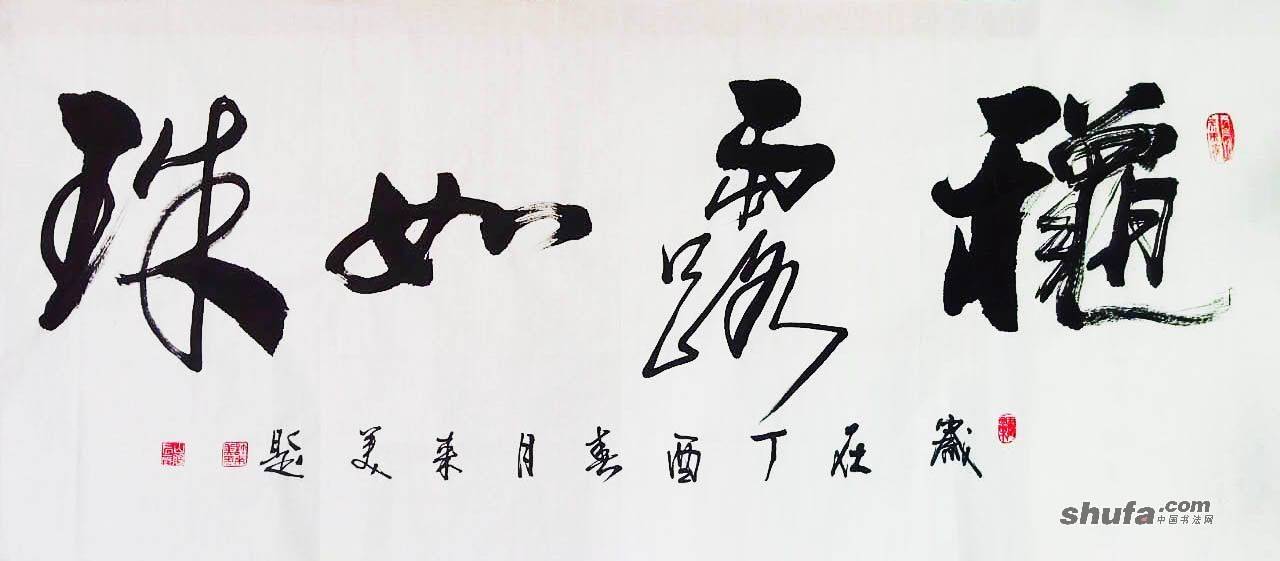 穐露如珠
歲在丁酉春月来美题
shufa.com
中国书法网